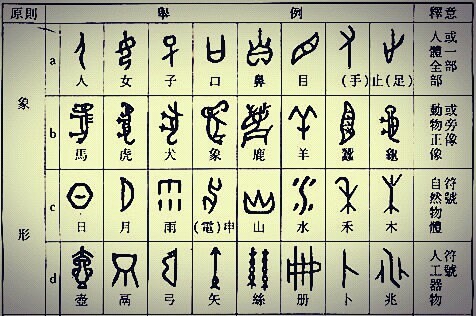 原則 舉例 釋意
象形
a
人 女 子 口 鼻 目 (手) 止(足)
人體全部
或一部
b
馬 虎 犬 象 鹿 羊 蠶 龜
動物正像
或旁像
c
日 月 雨 (電)申 山 水 禾 木
自然物體
符號
d
壺 鬲 弓 矢 絲 册 卜 兆
人工器物
符號